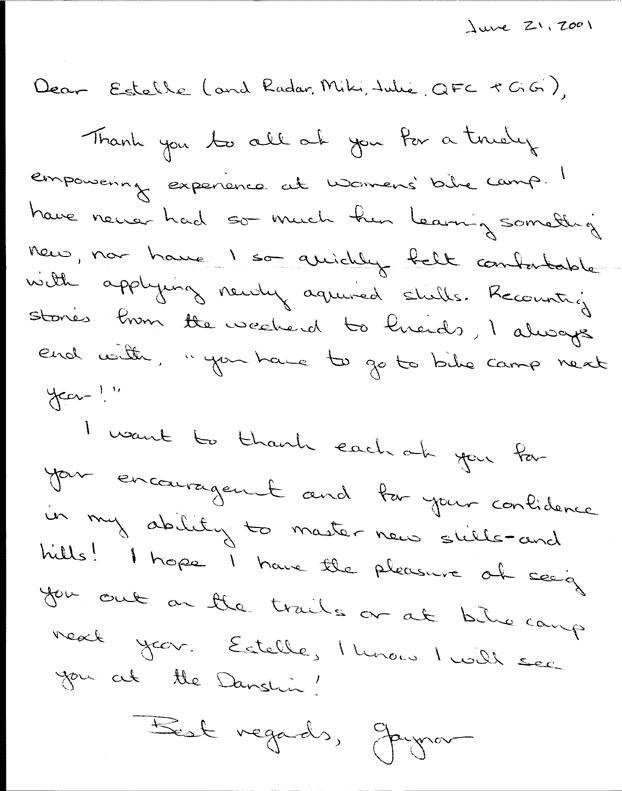 June 21, 2001
Dear Estelle (and Radar, Miki, Julie, QFC + GiGi),
Thank you to all of you for a truely
empowering experience at womens' bike camp. I
have never had so much fun learning something
new, nor have I so quickly felt comfortable
with applying newly aquired skills. Recounting
stories from the weekend to freids, I always
end with, "you have to go to bike camp next
year!"
I want to thank each of you for
your encouragent and for your confidence
in my ability to master new skills-and
hills! I hope I have the pleasure of seeing
you out on the trails or at bike camp
next year. Estelle, I know I will see
you at the Danskin!
Best regards, Gaynor